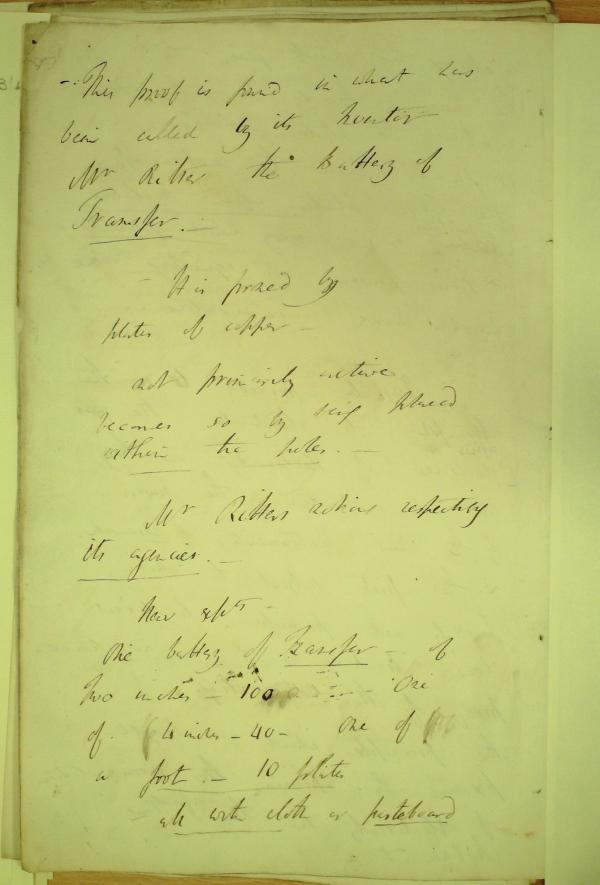 -: This proof is found in what has
been called by its Inventor
Mr Ritter the Battery of
Transfer. —
— It is formed by
plates of copper —
not primarily active
becomes so by being placed
within the poles. —
Mr Ritters notions respecting
its agencies. —
New expts —
One battery of Transfer — of
Two inches — 100 — One
of 4 inches — 40 — One of
a foot. — 10 plates
all with cloth or pasteboard